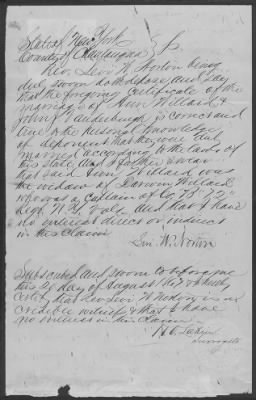 State of New York
County of Chautauqua } ss.
Rev. Levi W. Norton being
duly sworn doth depose and say
that the foregoing certificate of the
marriage of Ann Willard &
John J. Vanderburgh is correct and
true & the personal knowledge
of deponent that they were duly
married according to the laws of
this state And further swears
that said Ann Willard was
the widow of Darwin Willard
who was a Captain of Co "B" 72"
Regt N.Y. Vols and that I have
no interest direct or indirect
in his claim
Levi W. Norton
Subscribed and sworn to before me
this day of August 1867 & I hereby
certify that Rev Levi W Norton is a
credible witness & that I have
no interest in this Claim
Surrogate